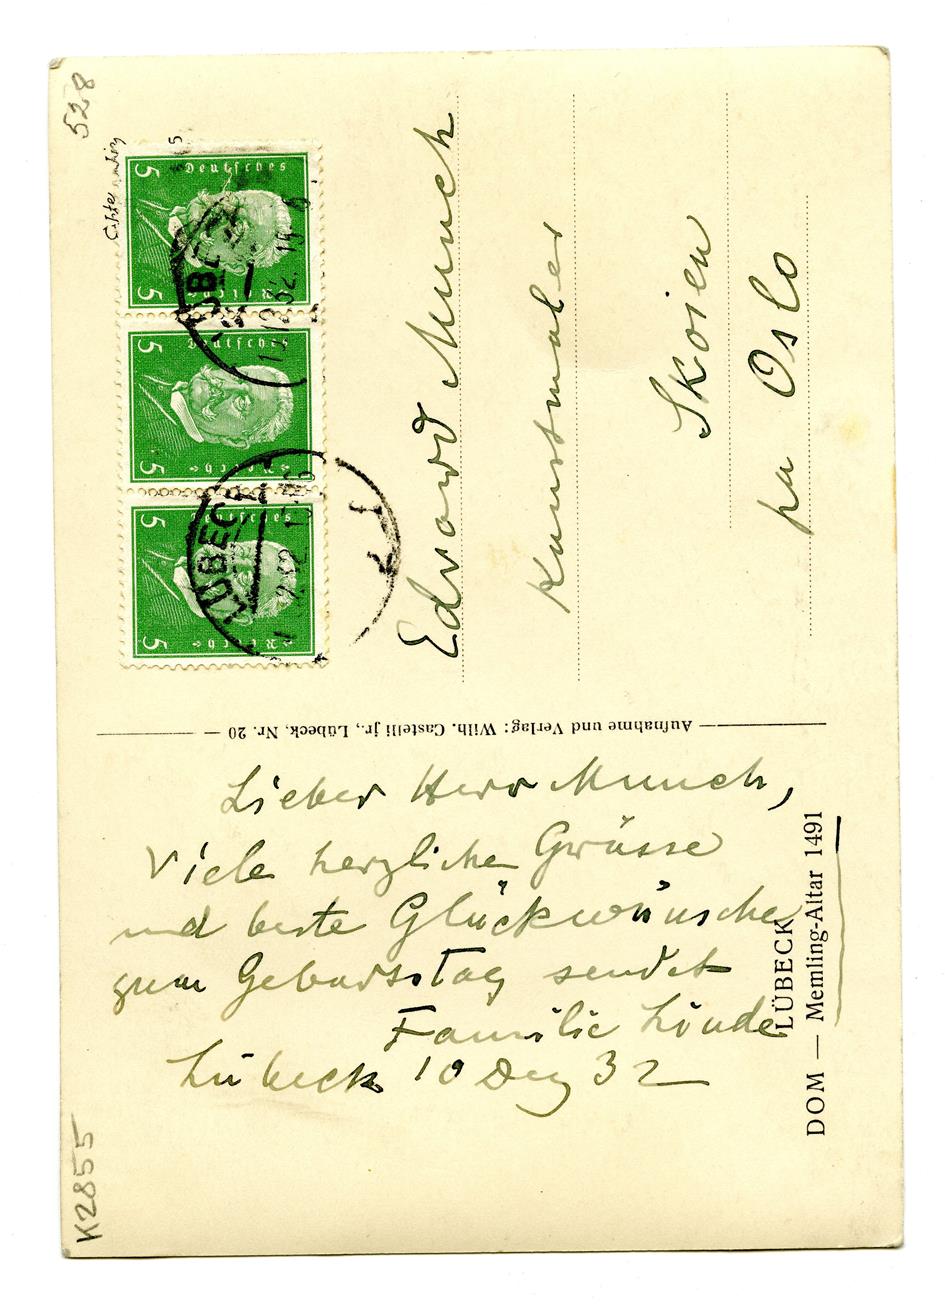 Lieber Herr Munch,
Viele herzliche Grüsse
und beste Glückwünsche
zum Geburtstag sendet
Familie Linde
Lübeck 10 Dez 32
LÜBECK
DOM — Memling-Altar 1491
— Aufnahme und Verlag: Wilh. Castelli jr., Lübeck, Nr. 20 —
Edvard Munch
Kunstmaler
Skoien
pa Oslo
5 Deutsches Reich 5
5 Deutsches Reich 5
5 Deutsches Reich 5
LÜBECK
LÜBECK
528
K2855